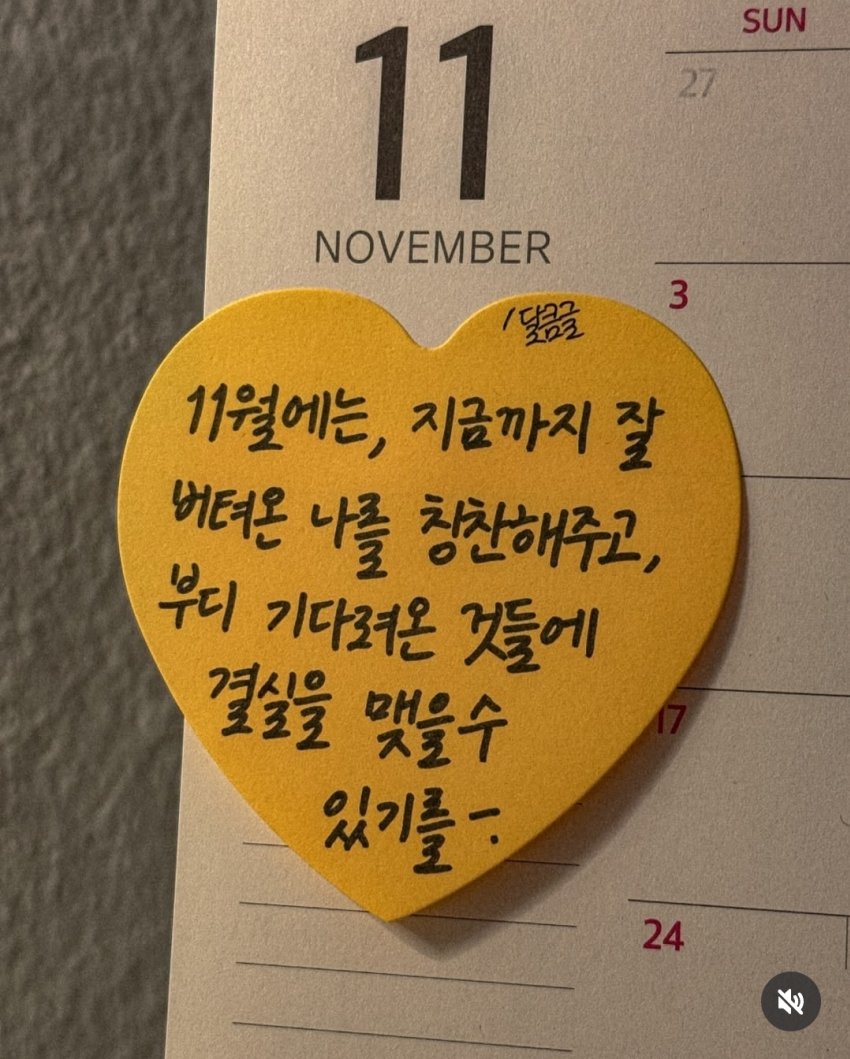 11
NOVEMBER
SUN
27
3
17
24
/달콤글
11월에는, 지금까지 잘
버텨온 나를 칭찬해주고,
부디 기다려온 것들에
결실을 맺을 수
있기를-.